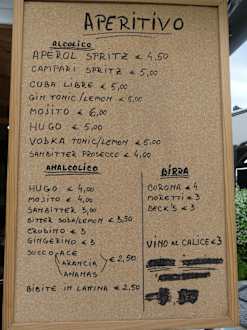 APERITIVO
ALCOLICO
APEROL SPRITZ € 4,50
CAMPARI SPRITZ € 5,00
CUBA LIBRE € 5,00
GIN TONIC/LEMON € 5,00
MOJITO € 6,00
HUGO € 5,00
VODKA TONIC/LEMON € 5,00
SANBITTER PROSECCO € 4,00
ANALCOLICO
HUGO € 4,00
MOJITO € 4,00
SANBITTER 3,00
BITTER SODA/LEMON € 3,50
CRODINO € 3
GINGERINO € 3
SUCCO ACE
ARANCIA
ANANAS
€ 2,50
BIBITE IN LATTINA € 2,50
BIRRA
CORONA € 4
MORETTI € 3
BECK'S € 3
VINO AL CALICE € 3